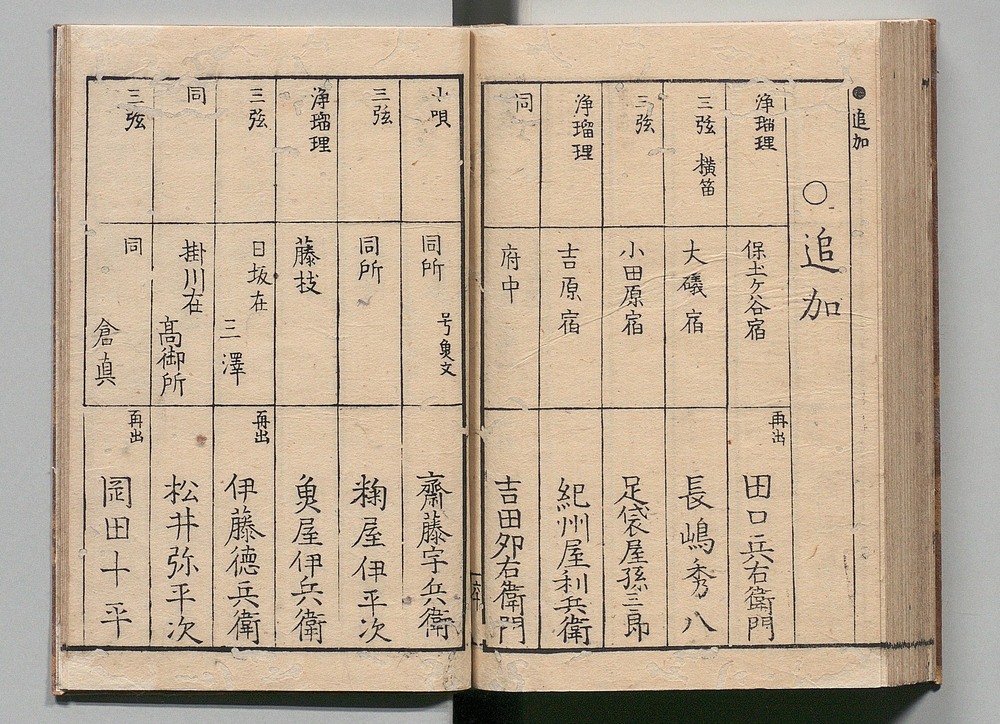 ●追加
○追加
浄瑠理 保土ヶ谷宿 再出 田口兵右衛門
三弦 横笛 大礒宿 長嶋秀八
三弦 小田原宿 足袋屋孫三郎
浄瑠理 吉原宿 紀州屋利兵衛
同 府中 吉田卯右衛門
小唄 同所 号魚文 齋藤宇兵衛
三弦 同所 麹屋伊平次
浄瑠理 藤枝 魚屋伊兵衛
三弦 日坂在 三澤 再出 伊藤徳兵衛
同 掛川在 高御所 松井弥平次
三弦 同 倉真 再出 岡田十平